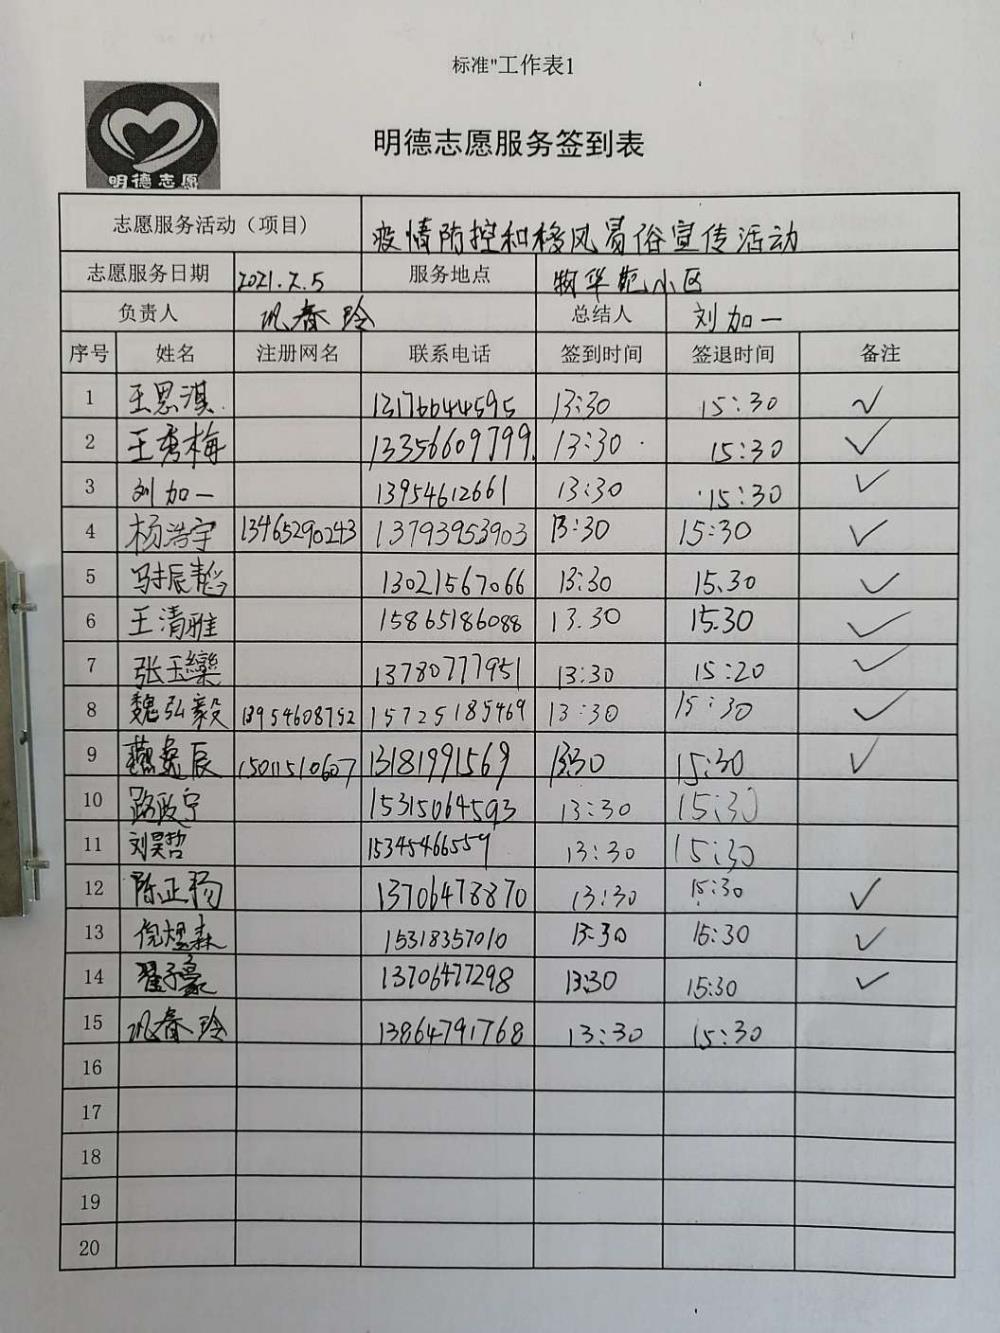 标准"工作表1
明德志愿
明德志愿服务签到表
志愿服务活动（项目） 疫情防控和移风易俗宣传活动
志愿服务日期 2021.2.5 服务地点 物华苑小区
负责人 巩春玲 总结人 刘加一
序号 姓名 注册网名 联系电话 签到时间 签退时间 备注
1 王思淇 13176644595 13:30 15:30 ✓
2 王秀梅 13356609799 13:30 15:30 ✓
3 刘加一 13954612661 13:30 15:30 ✓
4 杨浩宇 13465290243 13793953903 13:30 15:30 ✓
5 马振韬 13021567066 13:30 15.30 ✓
6 王清雅 15865186088 13.30 15.30 ✓
7 张玉 13780777951 13:30 15:20 ✓
8 魏弘毅 13954608752 15725185469 13:30 15:30 ✓
9 辰 15011510607 13181991569 13:30 15:30 ✓
10 路政宁 15315064593 13:30 15:30
11 刘昊哲 15345466559 13:30 15:30
12 陈正杨 13706478870 13:30 15:30 ✓
13 倪煜森 15318357010 13:30 15:30 ✓
14 翟子豪 13706477298 13:30 15:30 ✓
15 巩春玲 13864791768 13:30 15:30
16
17
18
19
20